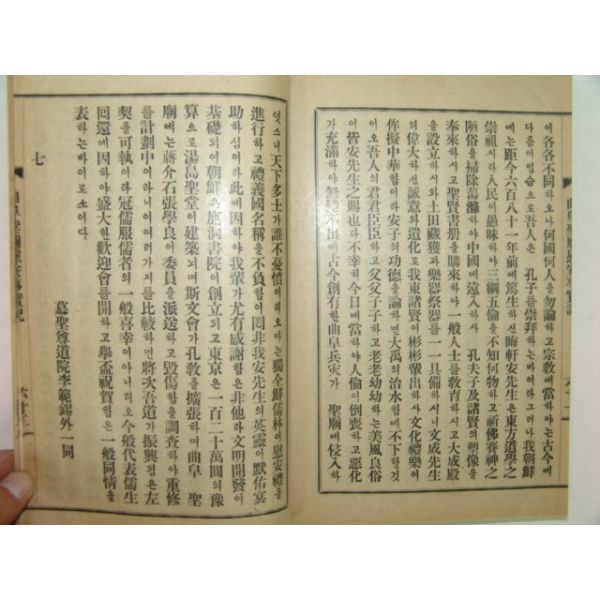 이各各不同하오나何國何人을勿論하고宗敎에當하야는古今에
다름이업슴으로吾人은 孔子를崇拜하는바이라그러나我朝鮮
에는距今六百八十一年前에篤生하신晦軒安先生은東方道學之
崇祖시라人民이愚昧하야三綱五倫을不知何物하고祈佛賽神之
陋俗을掃除蕩滌하야中國에遠入하사 孔夫子及諸賢의塑像을
奉來하시고聖賢書册을購來하야一般人士를敎育하시고大成殿
을設立하시와土田藏獲과樂器祭器를一一具備하시니文成先生
의偉大하신誠意와遺化로我東諸賢이彬彬輩出하사文化禮樂이
侔擬中華함이라安子의功德을論하면大禹의治水함에不下할것
이오吾人의君君臣臣하고父父子子하고老老幼幼하는美風良俗
이皆安先生之賜也라不幸히今日에當하야人倫이倒喪하고惡化
가充滿하야無變不出에古今創有한曲阜兵灾가 聖廟에侵入하
엿스니天下多士가誰不憂憤이리오마는獨令鮮儒林이慰安禮를
進行하고禮義國名稱을不負함이罔非我安先生의英靈이默佑冥
助하심이라此에因하야我輩가尤有感謝함은非他라文明開發이
基礎되야朝鮮은鹿洞書院이創立되고東京은一百二十萬圓의豫
算으로湯島聖堂이建築되며斯文會가孔敎를擴張하며曲阜 聖
廟에는蔣介石張學良이委員을派送하고毀傷함을調査하야重修
를計劃中이라니이여러가지를比較하면將次吾道가振興됨은左
契를可執이라冠儒服儒者의一般喜幸이아니리오今般代表儒生
回還에因하야盛大한歡迎會를開하고擧盃祝賀함은一般同情을
表하는바이로소이다
慕聖尊道院李範錫外一同
七